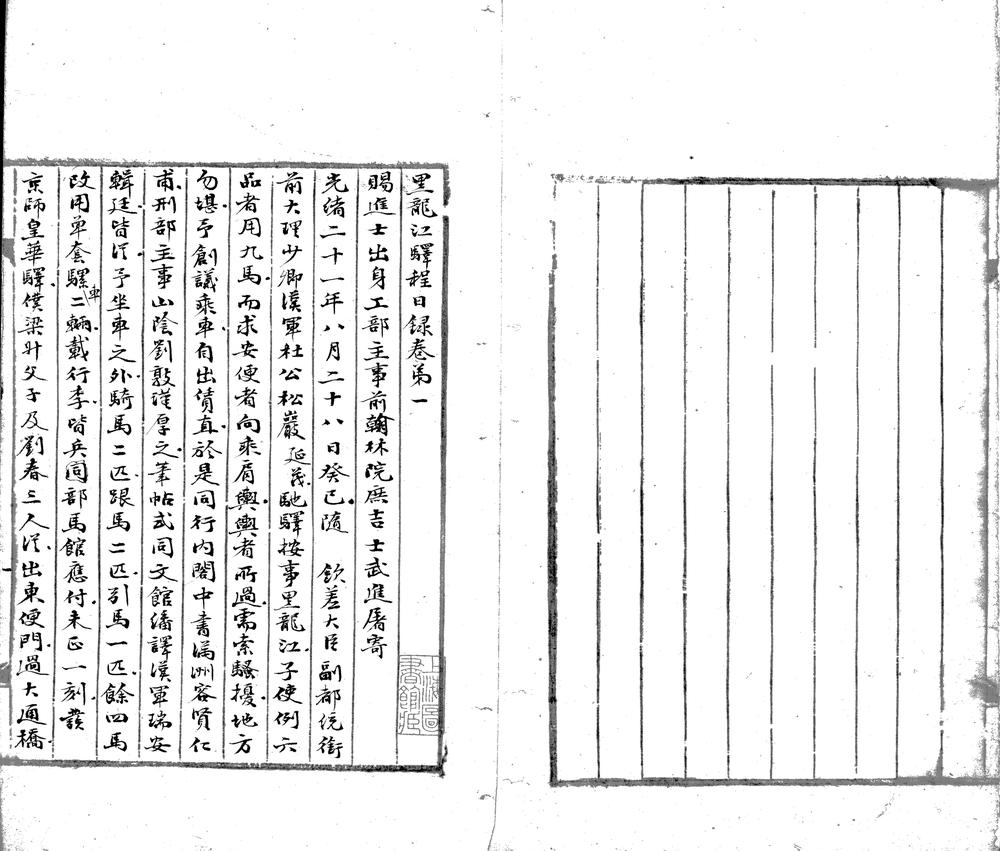 黑龍江驛程日録卷第一
賜進士出身工部主事前翰林院庶吉士武進屠寄
光緒二十一年八月二十八日癸巳隨　欽差大臣副都統銜
前大理少卿漢軍杜公松巖延茂馳驛按事黑龍江予使例六
品者用九馬而求安便者向乘肩輿輿者所過需索騷擾地方
勿堪予創議乘車自出僨直於是同行内閣中書滿洲容賢仁
甫刑部主事山陰劉敦謹厚之筆帖式同文館繙譯漢軍瑞安
輯廷皆從予坐車之外騎馬二匹跟馬二匹引馬一匹餘四馬
改用單套騾車二輛載行李皆兵部馬館應付未正一刻發
京師皇華驛僕梁升父子及劉春三人從出東便門過大通橋
上海圖書館藏